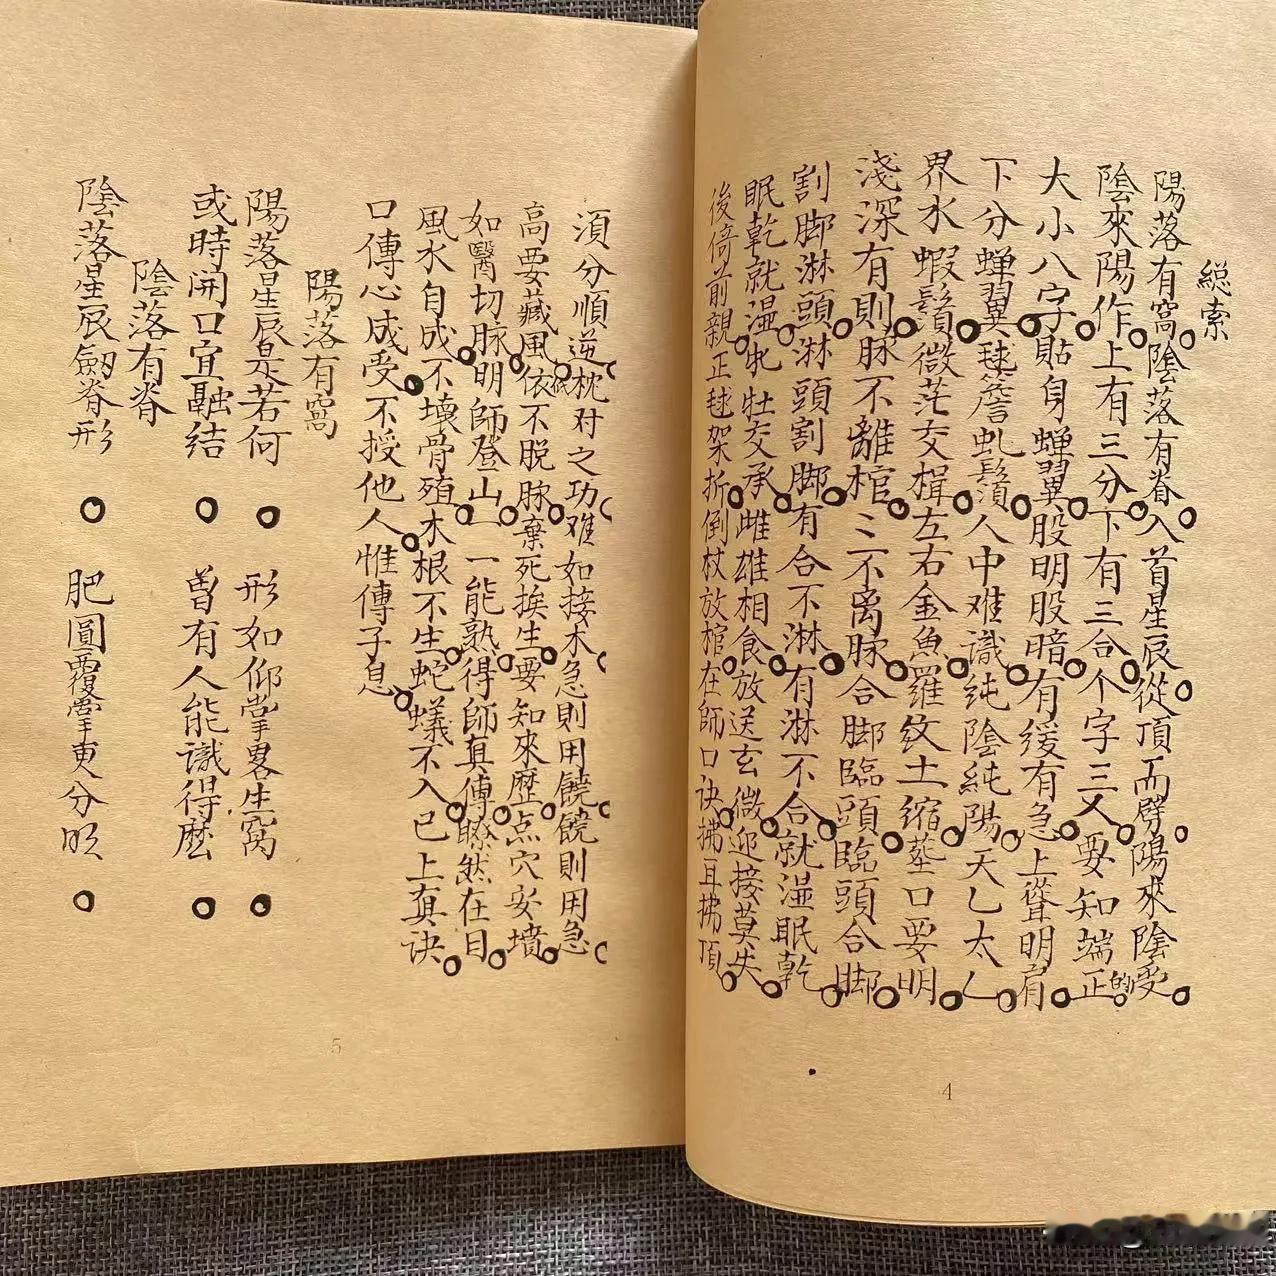 緫索
陽落有窩陰落有脊入首星辰從頂而劈陽來陰受
陰來陽作上有三分下有三合个字三乂要知端正的
大小八字貼身蝉翼股明股暗有缓有急上聳明肩
下分蝉翼毬簷虬鬚人中难識純陰純陽天乚太乚
界水蝦鬚微茫交揖左右金魚羅紋土缩塟口要明
淺深有則脉不離棺〻不离脉合脚臨頭臨頭合脚
割脚淋頭淋頭割脚有合不淋有淋不合就湿眠乾
眠乾就湿牝牡交承雌雄相食放送玄微迎接莫失
後倚前親正毬架折倒杖放棺在師口诀拂耳拂頂
4
須分順逆枕对之功难如接木急則用饒饒則用急
高要藏風低依不脱脉棄死挨生要知來歷点穴安墳
如醫切脉明師登山一一能熟得師真傳瞭然在目
風水自成不壞骨殖木根不生蛇蟻不入已上真诀
口傳心成受不授他人惟傳子息
陽落有窩
陽落星辰是若何 形如仰掌畧生窩
或時開口宜融结 曽有人能識得麽
陰落有脊
陰落星辰劔脊形 肥圓覆掌要分明
5